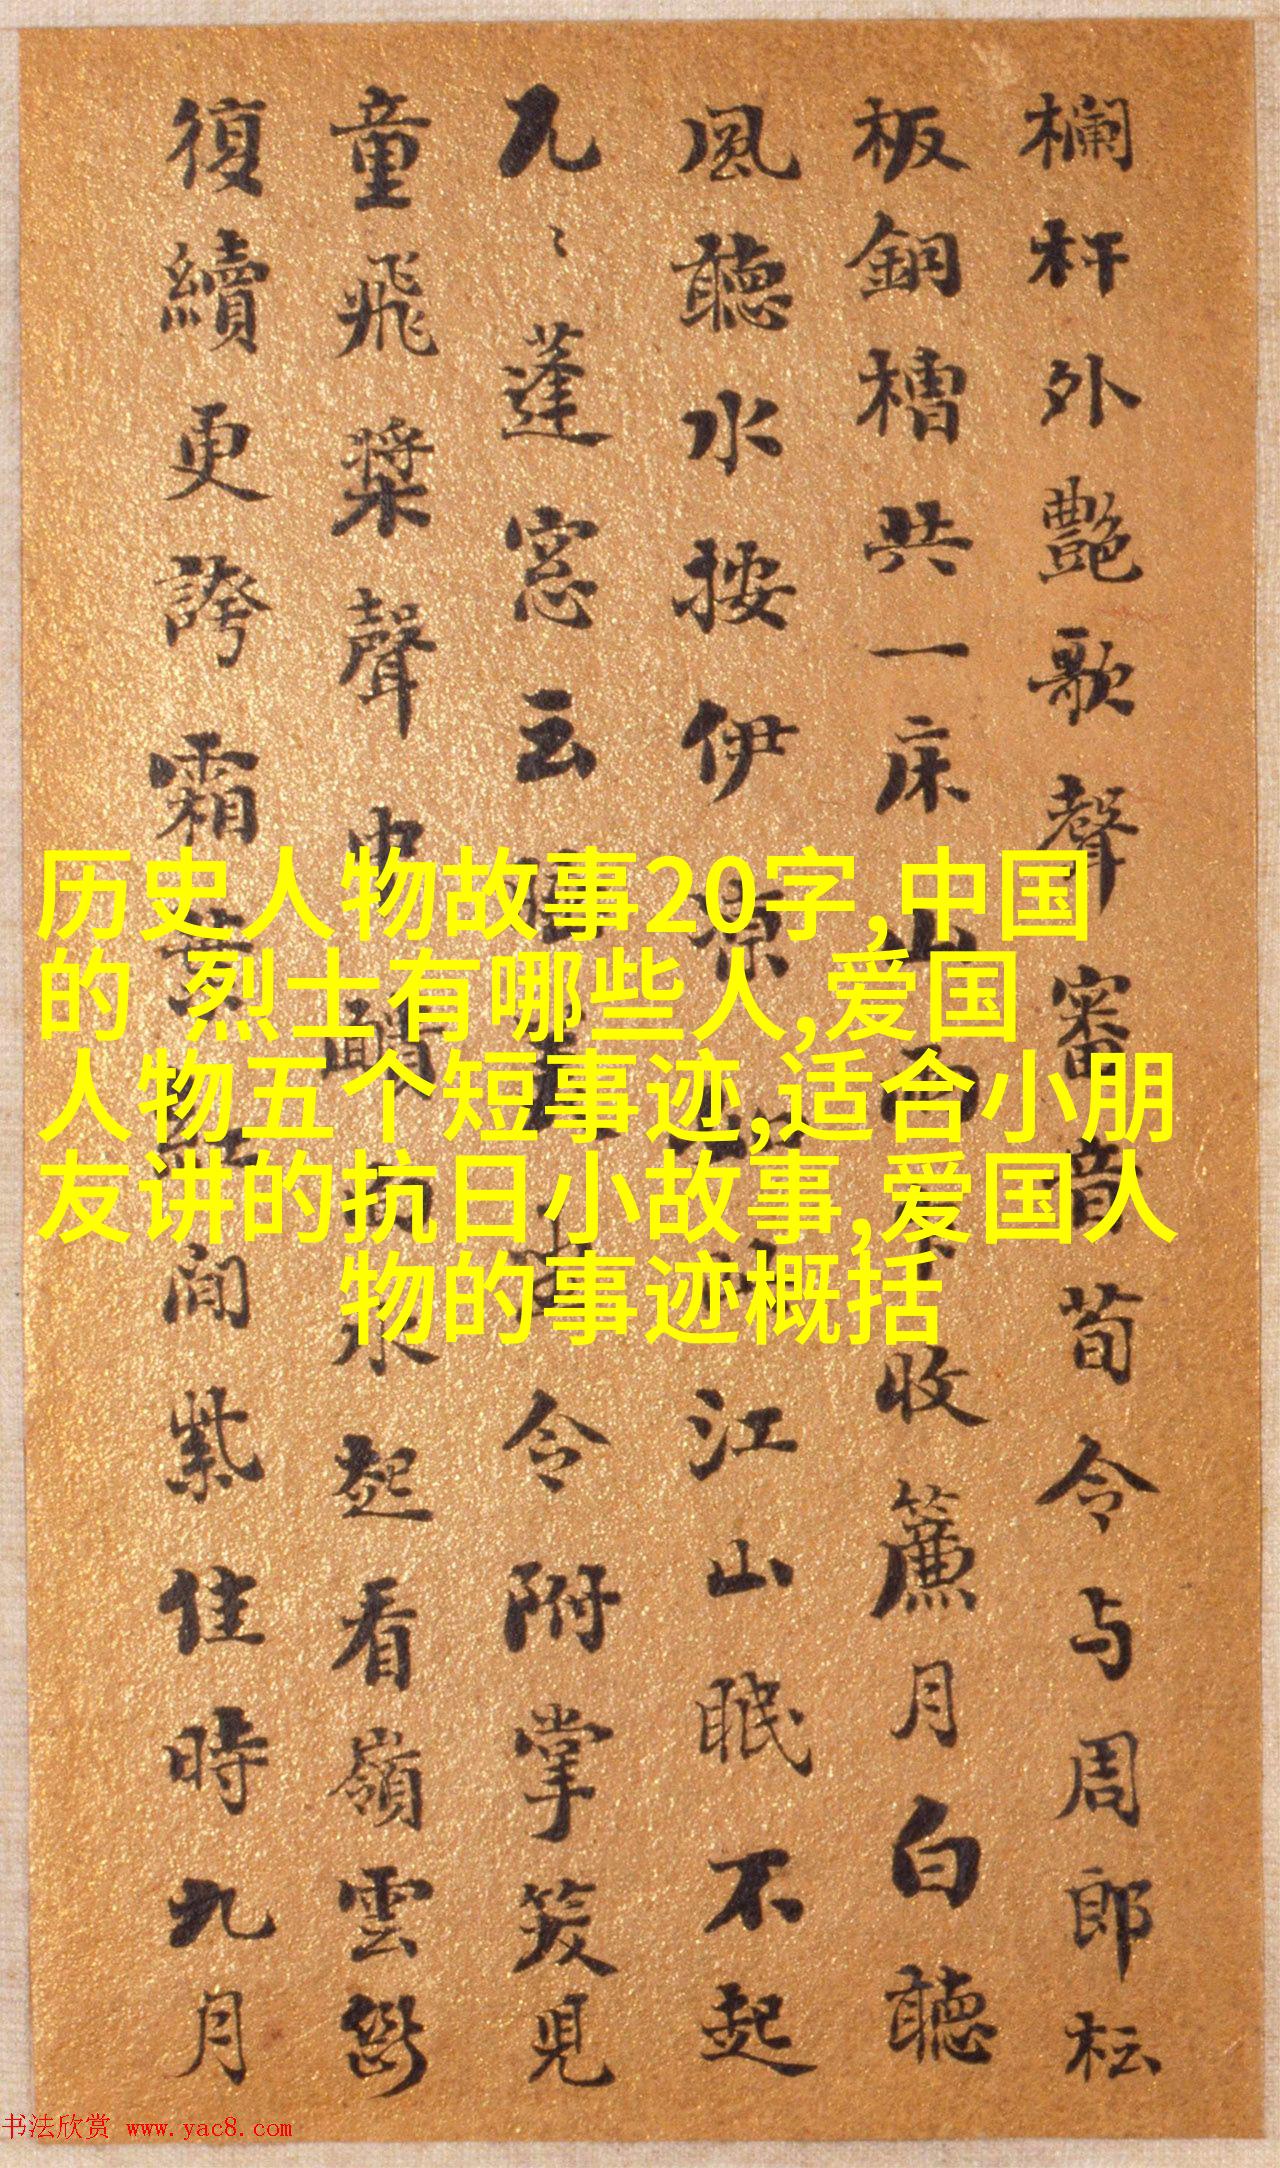 欄杆外艷歌聲審音荀令与周郎枟
板銅槽共一床山雨乍收簾月白聽
風聽水按伊涼江山眠不起
蓬窓云令附掌笑見
童飛槳聲中醒起看嶺雲
復續更誇霜葉間紫佳時九月
历史人物故事20字,中国
的 烈士有哪些人,爱国
人物五个短事迹,适合小朋
友讲的抗日小故事,爱国人
物的事迹概括
书法欣赏 www.yac8.com